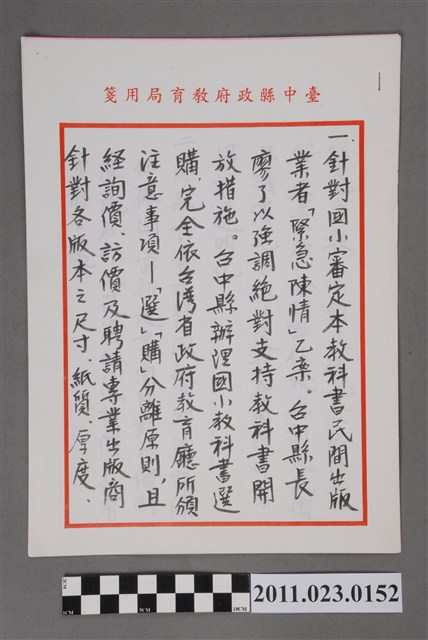 臺中縣政府教育局用箋
一.針對國小審定本教科書民間出版
業者「緊急陳情」乙案。台中縣長
廖了以強調絕對支持教科書開
放措施。台中縣辦理國小教科書選
購,完全依台灣省政府教育廳所頒
注意事項—「選」「購」分離原則,且
経詢價、訪價及聘請專業出版商
針對各版本之尺寸、紙質、厚度、
1CM
5CM
10CM
2011.023.0152